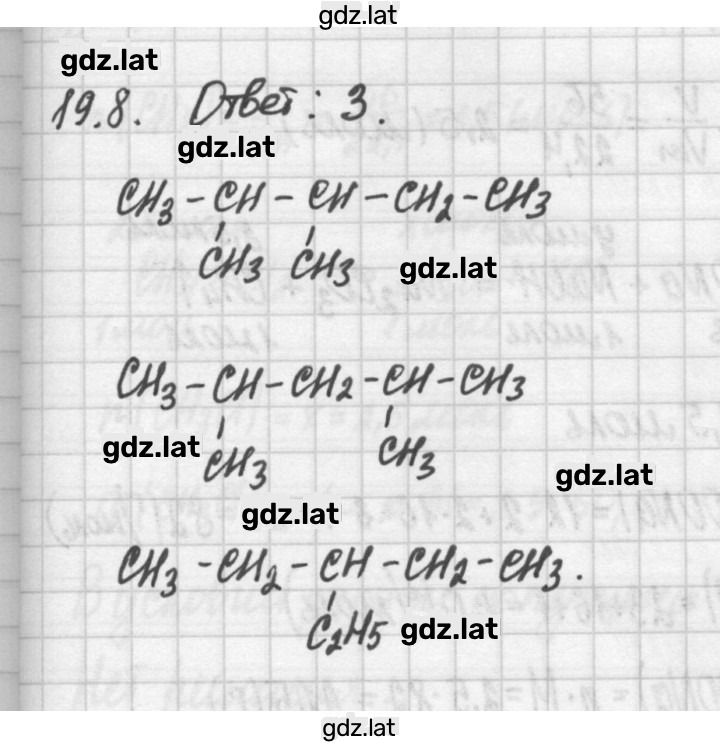 gdz.lat
gdz.lat
19.8. Ответ: 3.
gdz.lat
CH3 - CH - CH - CH2 - CH3
CH3 CH3 gdz.lat
CH3 - CH - CH2 - CH - CH3
gdz.lat CH3 CH3
gdz.lat
gdz.lat
CH3 - CH2 - CH - CH2 - CH3.
C2H5 gdz.lat
gdz.lat